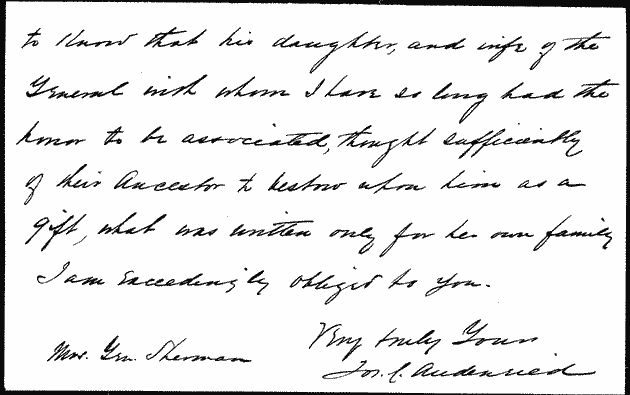 to know that his daughter, and wife of the
General with whom I have so long had the
honor to be associated, thought sufficiently
of their Ancestor to bestow upon him as a
gift, what was written only for her own family
I am exceedingly obliged to you.
Very truly Yours
Mrs. Gen. Sherman
Jos. C. Audenried